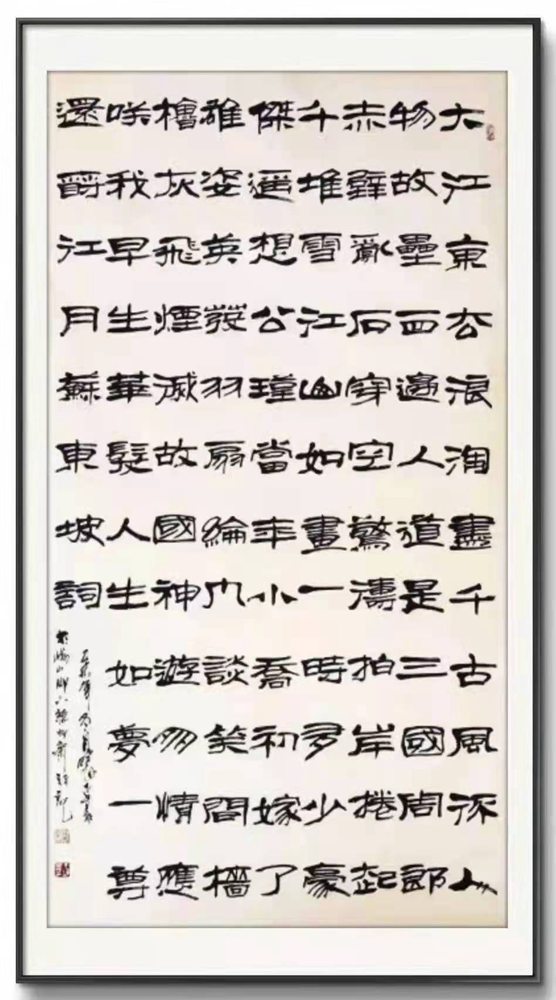 大江東去浪淘盡千古風流人
物故壘西邊人道是三國周郎
赤壁亂石穿空驚濤拍岸捲起
千堆雪江山如畫一時多少豪
傑遥想公瑾當年小喬初嫁了
雄姿英發羽扇綸巾談笑間檣
櫓灰飛煙滅故國神遊多情應
咲我早生華髮人生如夢一尊
還酹江月蘇東坡詞